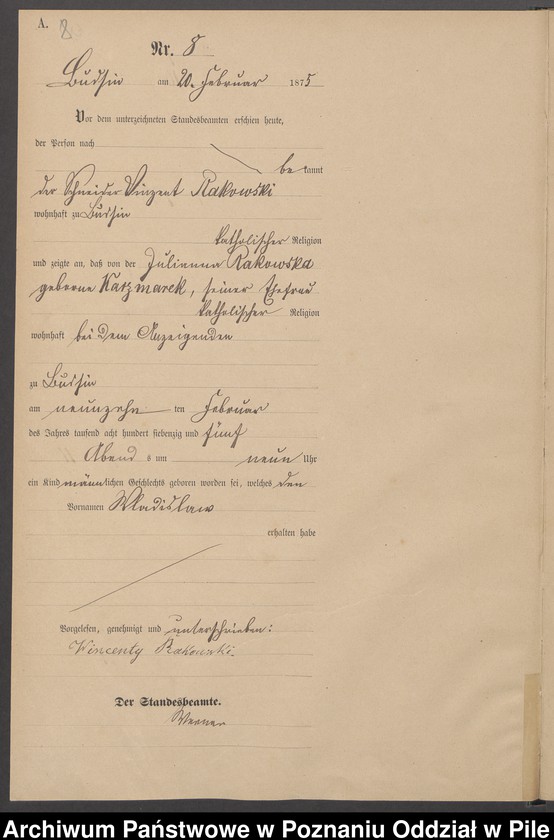 A. 8
Nr. 8
Budsin am 20. Februar 1875
Vor dem unterzeichneten Standesbeamten erschien heute,
der Person nach
bekannt
der Schneider Vinzent Rakowski
wohnhaft zu Budsin
katholischer Religion
und zeigte an, daß von der Julianna Rakowska
geborne Karzmarek, seiner Ehefrau
katholischer Religion
wohnhaft bei dem Anzeigenden
zu Budsin
am neunzehn ten Februar
des Jahres tausend acht hundert siebenzig und fünf
Abend s um neun Uhr
ein Kind männlichen Geschlechts geboren worden sei, welches den
Vornamen Wladislaw
erhalten habe
Vorgelesen, genehmigt und unterschrieben:
Wincenty Rakowski
Der Standesbeamte.
Werner
Archiwum Państwowe w Poznaniu Oddział w Pile